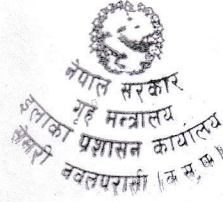 नेपाल सरकार
गृह मन्त्रालय
इलाका प्रशासन कार्यालय
नवलपरासी